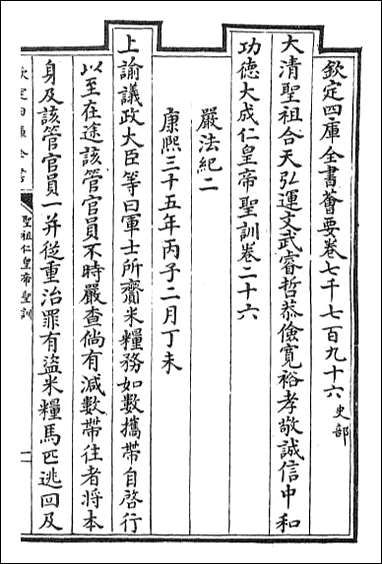 欽定四庫全書薈要卷七千七百九十六史部
大清聖祖合天弘運文武睿哲恭儉寬裕孝敬誠信中和
功德大成仁皇帝聖訓卷二十六
嚴法紀二
康熙三十五年丙子二月丁未
上諭議政大臣等曰軍士所齎米糧務如數攜帶自啓行
以至在途該管官員不時嚴查倘有減數帶往者將本
身及該管官員一并從重治罪有盜米糧馬匹逃回及
欽定四庫全書
聖祖仁皇帝聖訓
一